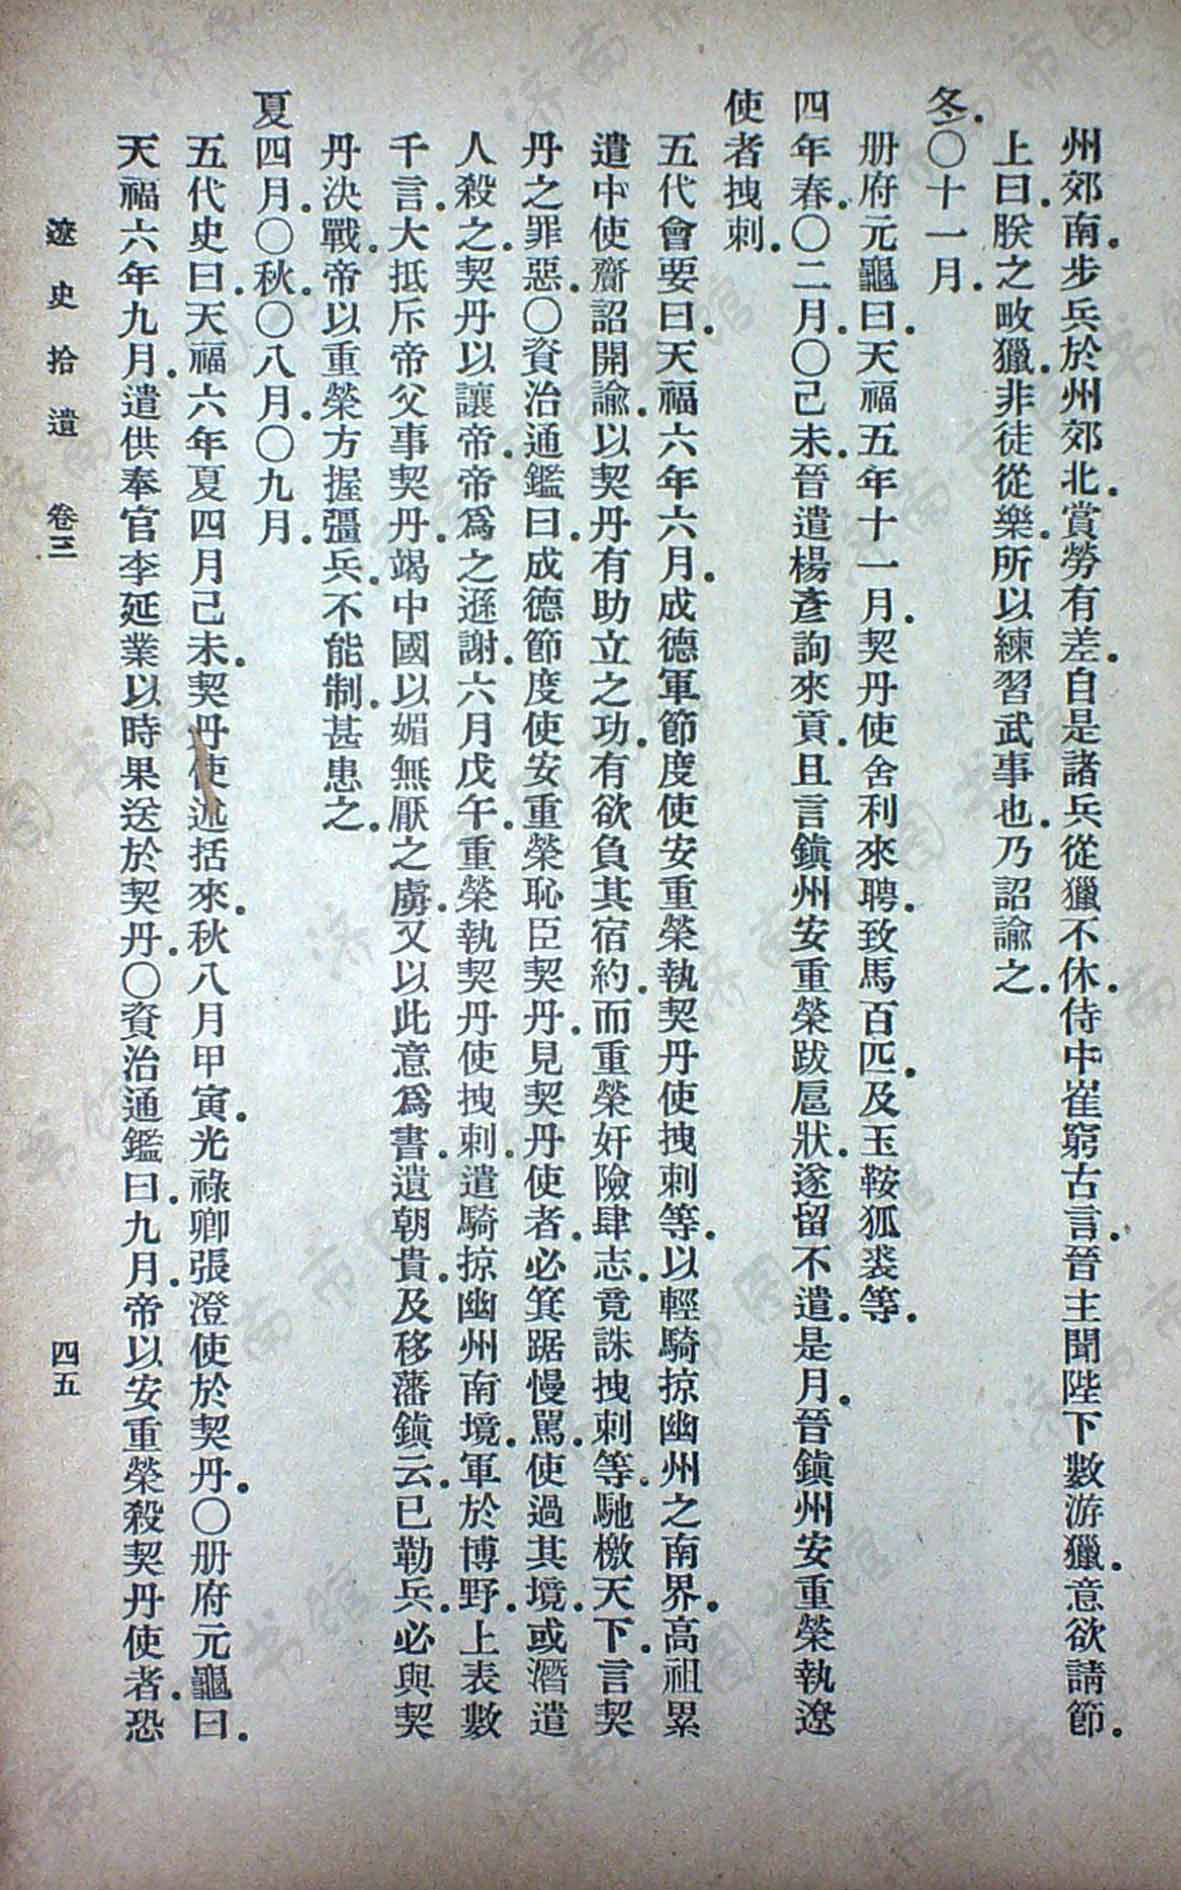 州郊南步兵於州郊北賞勞有差自是諸兵從獵不休侍中崔窮古言晉主聞陛下數游獵意欲請節
上曰朕之畋獵非徒從樂所以練習武事也乃詔諭之
冬〇十一月
册府元龜曰天福五年十一月契丹使舍利來聘致馬百匹及玉鞍狐裘等
四年春〇二月〇己未晉遣楊彥詢來貢且言鎮州安重榮跋扈狀遂留不遣是月晉鎮州安重榮執遼
使者拽剌
五代會要曰天福六年六月成德軍節度使安重榮執契丹使拽刺等以輕騎掠幽州之南界高祖累
遣中使齎詔開諭以契丹有助立之功有欲負其宿約而重榮奸險肆志竟誅拽刺等馳檄天下言契
丹之罪惡〇資治通鑑曰成德節度使安重榮恥臣契丹見契丹使者必箕踞慢罵使過其境或潛遣
人殺之契丹以讓帝帝爲之遜謝六月戊午重榮執契丹使拽刺遣騎掠幽州南境軍於博野上表數
千言大抵斥帝父事契丹竭中國以媚無厭之虜又以此意爲書遺朝貴及移藩鎮云已勒兵必與契
丹決戰帝以重榮方握彊兵不能制甚患之
夏四月〇秋〇八月〇九月
五代史曰天福六年夏四月己未契丹使述括來秋八月甲寅光祿卿張澄使於契丹〇册府元龜曰
天福六年九月遣供奉官李延業以時果送於契丹〇資治通鑑曰九月帝以安重榮殺契丹使者恐
遼史拾遺 卷三 四五